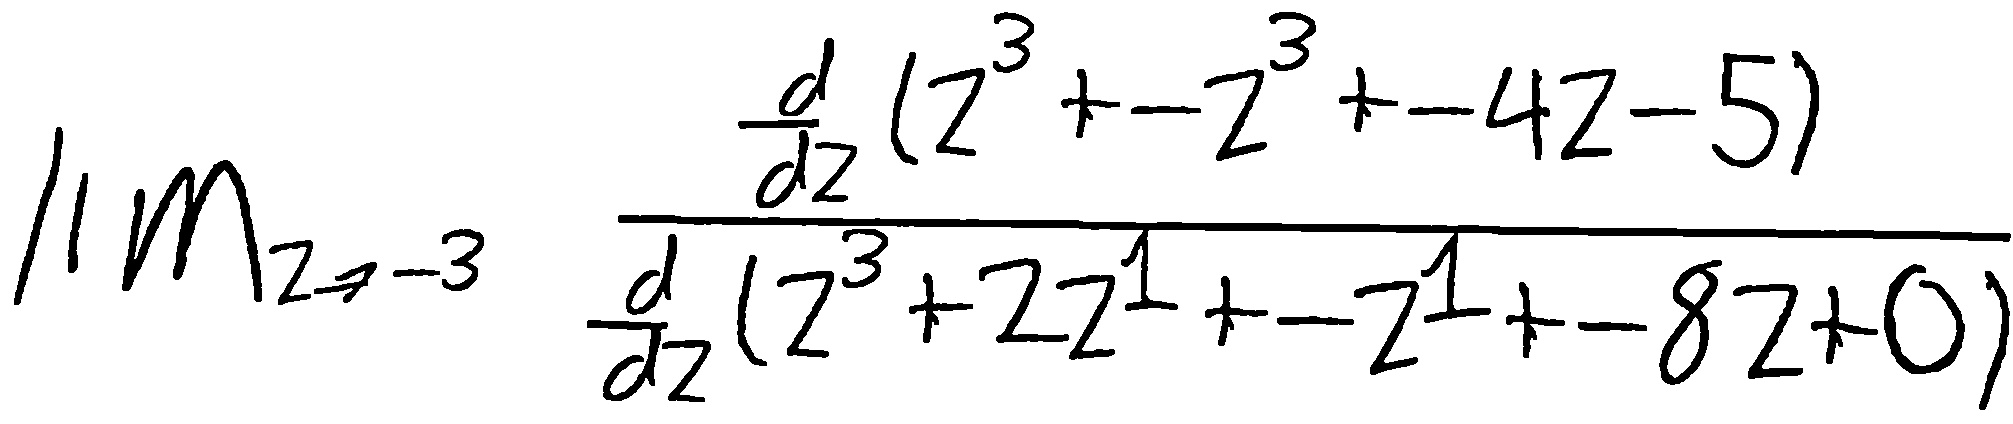 \lim_{z \to -3} \frac{\frac{d}{dz}(z^3 + -z^3 + -4z - 5)}{\frac{d}{dz}(z^3 + 2z^1 + -z^1 + -8z + 0)}